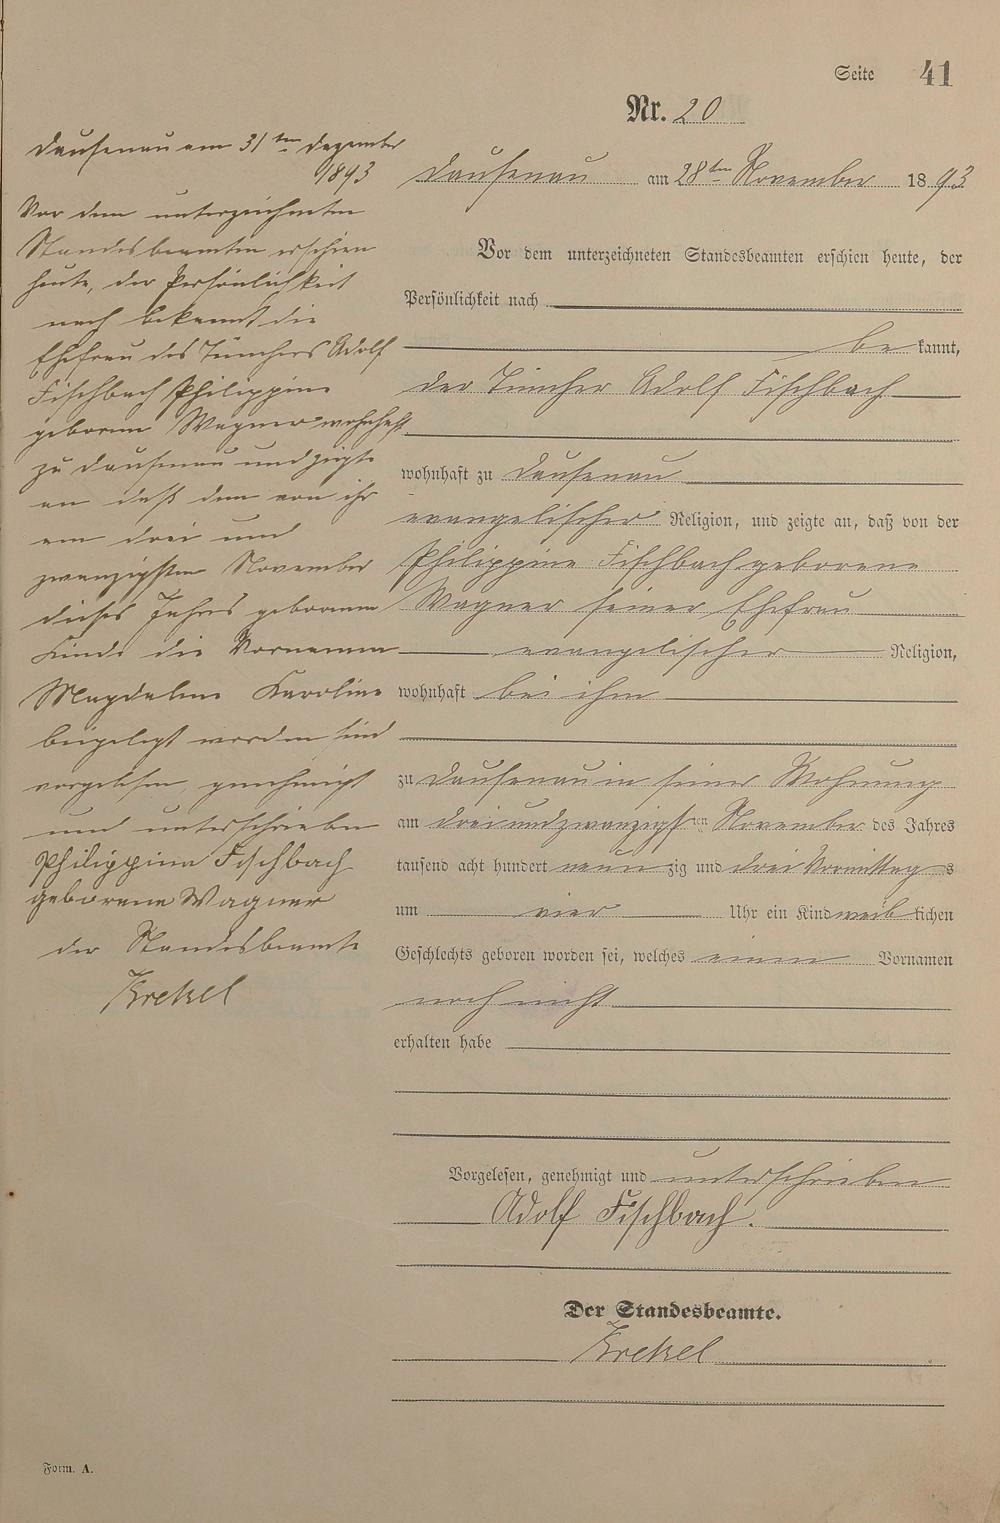 Seite 41
Nr. 20
Dausenau am 28ten November 1893
Vor dem unterzeichneten Standesbeamten erschien heute, der
Persönlichkeit nach
bekannt,
der Tüncher Adolf Fischbach
wohnhaft zu Dausenau
evangelischer Religion, und zeigte an, daß von der
Philippine Fischbach geborene
Wagner seiner Ehefrau
evangelischer Religion,
wohnhaft bei ihm
zu Dausenau in seiner Wohnung
am dreiundzwanzigsten November des Jahres
tausend acht hundert neunzig und drei Vormittags
um vier Uhr ein Kind weiblichen
Geschlechts geboren worden sei, welches einen Vornamen
noch nicht
erhalten habe
Vorgelesen, genehmigt und unterschrieben
Adolf Fischbach.
Der Standesbeamte.
Krekel
Dausenau am 31ten Dezember
1893
Vor dem unterzeichneten
Standesbeamten erschien
heute, der Persönlichkeit
nach bekannt die
Ehefrau des Tünchers Adolf
Fischbach Philippine
geborene Wagner wohnhaft
zu Dausenau und zeigte
an daß dem von ihr
am drei und
zwanzigsten November
dieses Jahres geborenen
Kinde die Vornamen
Magdalene Karoline
beigelegt worden sind
vorgelesen genehmigt
und unterschrieben
Philippine Fischbach
geborene Wagner
der Standesbeamte
Krekel
Form. A.